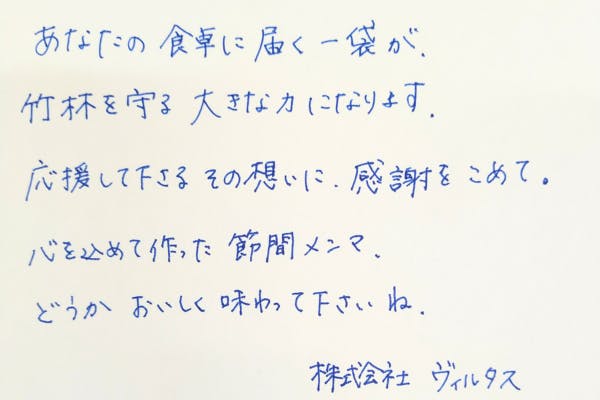 あなたの食卓に届く一袋が、
竹林を守る大きな力になります。
応援して下さるその想いに、感謝をこめて。
心を込めて作った節間メンマ、
どうかおいしく味わって下さいね。
株式会社 ヴィルタス